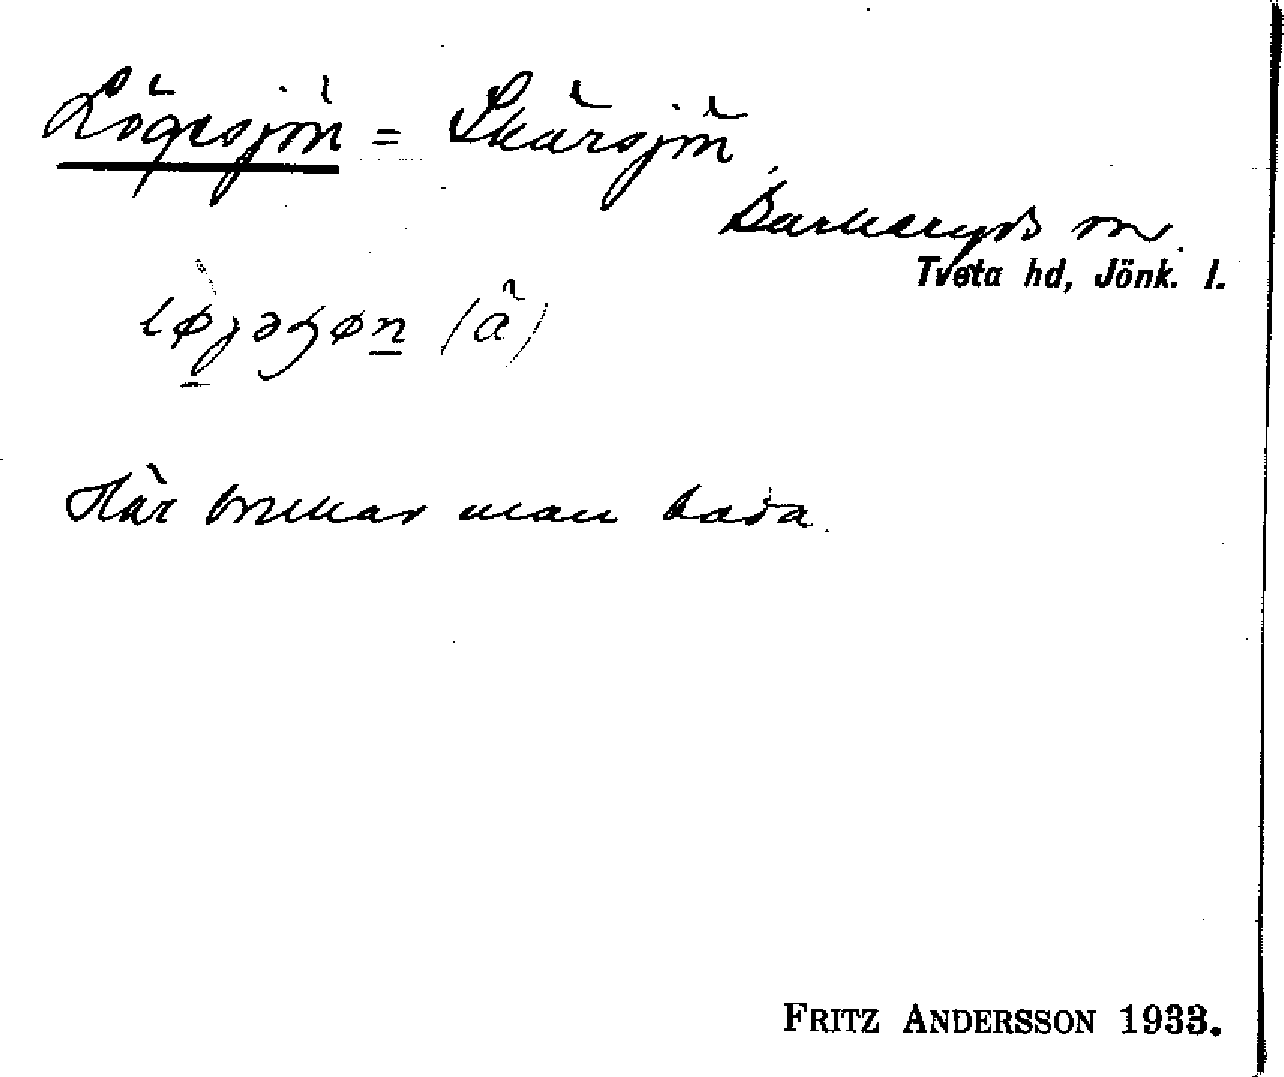 Lögesjön = Skärsjön
Barkeryds sn.
Tveta hd, Jönk. l.
(å)
Här brukar man bada.
FRITZ ANDERSSON 1933.